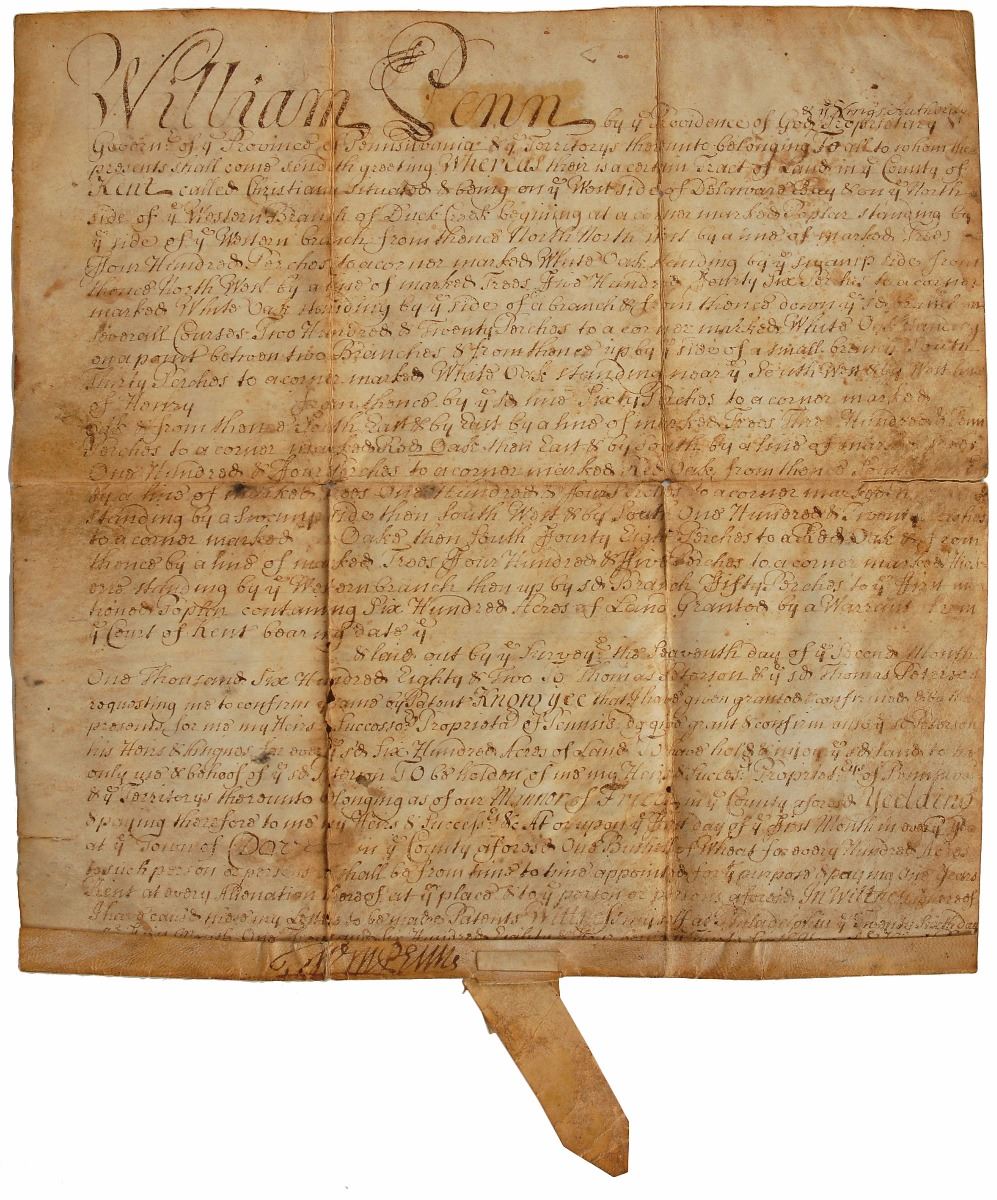 William Penn by yͤ Providence of God & yͤ Kings Authority Proprietary &
Governʳ of yͤ Province of Pennsilvania & yͤ Territorys thereunto belonging To all to whom these
presents shall come send greeting Whereas there is a certain Tract of Land in yͤ County of
Kent called Christiana Situated & being on yͤ West side of Delaware Bay & on yͤ North
side of yͤ Western Branch of Duck Creek begining at a corner marked Poplar standing by
yͤ side of yͤ Western branch from thence North North West by a line of marked Trees
Ffour Hundred Perches to a corner marked White Oak standing by yͤ swamp side from
thence North West by a line of marked Trees Five Hundred Fourty Six Perches to a corner
marked White Oak standing by yͤ side of a branch & from thence down yͤ sd branch
severall Courses Two Hundred & Twenty Perches to a corner marked White Oak standing
on a point between two Branches & from thence up by yͤ side of a small branch South
thirty Perches to a corner marked White Oak standing near yͤ South West & by West line
of Henry from thence by yͤ sd line Sixty Perches to a corner marked
Oak & from thence South East & by East by a line of marked Trees Three Hundred &
Perches to a corner marked Red Oak then East & by South by a line of marked Trees
One Hundred & Ffour Perches to a corner marked Red Oak from thence South
by a line of marked Trees One Hundred & ffour Perches to a corner marked
standing by a Swamp side then South West & by South One Hundred & Twenty Perches
to a corner marked Oake then South Ffourty Eight Perches to a Red Oak & from
thence by a line of marked Trees Ffour Hundred & Ffive Perches to a corner marked
standing by yͤ Western branch then up by sd Branch Ffifty Perches to yͤ first men
tioned Poplar containing Six Hundred Acres of Land Granted by a Warrant from
yͤ Court of Kent bearing date yͤ
& laid out by yͤ Surveyʳ the Seaventh day of yͤ Second Month
One Thousand Six Hundred Eighty & Two To Thomas Peterson & yͤ sd Thomas Peterson
requesting me to confirm yͤ same by Patent Know yee that I have given granted & confirmed & by these
presents for me my Heirs & Successoʳˢ Proprietaʳ of Pennsil do give grant & confirm unto yͤ sd Peterson
his Heirs & Assignes for ever yͤ sd Six Hundred Acres of Land To have hold & injoy yͤ sd Land to the
only use & behoof of yͤ sd Peterson To be holden of me my Heirs & Succesʳ Proprietʳʸˢ of Pennsilva
& yͤ Territorys thereunto belonging as of our Mannor of Frith in yͤ County aforesd Yeelding
& paying therefore to me my Heirs & Succesʳˢ &c At or upon yͤ First day of yͤ First Month in every Year
at yͤ Town of Dover in yͤ County aforesd One Bushel of Wheat for every Hundred Acres
to such person or persons as shall be from time to time appointed for yͤ purpose & paying One Years
Rent at every Alienation thereof at yͤ place & to yͤ person or persons aforesd In Witness whereof
I have caused these my Letters to be made Patents Wittness my self at Philadelphia yͤ Twenty Sixth day
Wm Penn